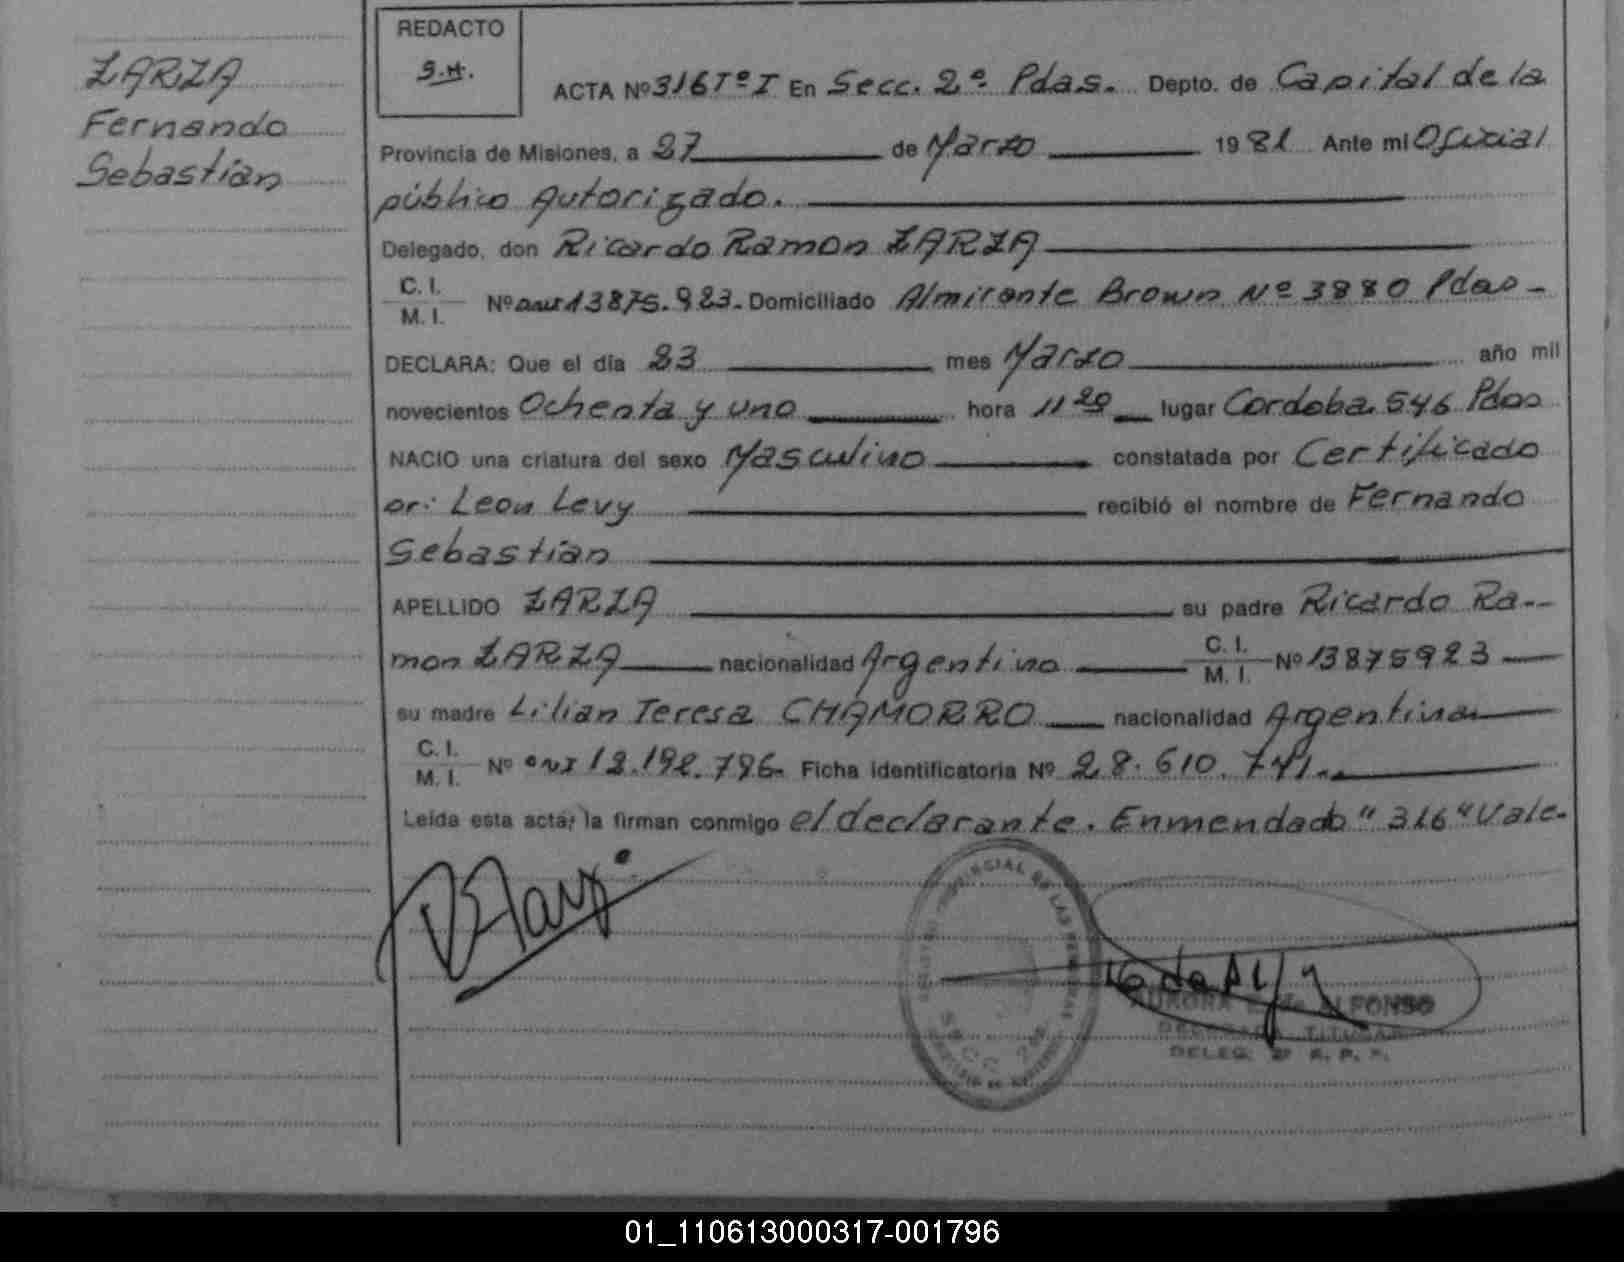 ZARZA
Fernando
Sebastián
REDACTO
S.H.
ACTA Nº 316 Tº I En Secc. 2º Pdas. Depto. de Capital de la
Provincia de Misiones, a 27 de Marzo 1981 Ante mi Oficial
público Autorizado.
Delegado, don Ricardo Ramon ZARZA
C. I.
M. I. Nº 13875.923. Domiciliado Almirante Brown Nº 3880 Pdas-
DECLARA: Que el día 23 mes Marzo año mil
novecientos Ochenta y uno hora 11 20 lugar Cordoba. 546 Pdas
NACIO una criatura del sexo Masculino constatada por Certificado
or: Leon Levy recibió el nombre de Fernando
Sebastián
APELLIDO ZARZA su padre Ricardo Ra--
mon ZARZA nacionalidad Argentino C. I. M. I. Nº 13875923
su madre Lilian Teresa CHAMORRO nacionalidad Argentina
C. I.
M. I. Nº DNI 12.198.796. Ficha identificatoria Nº 28.610.741.
Leída esta acta, la firman conmigo el declarante. Enmendado "316" Vale.
ALFONSO
DELEGADA TITULAR
DELEG. 2ª R. P. P.
SECC. 2da
01_110613000317-001796